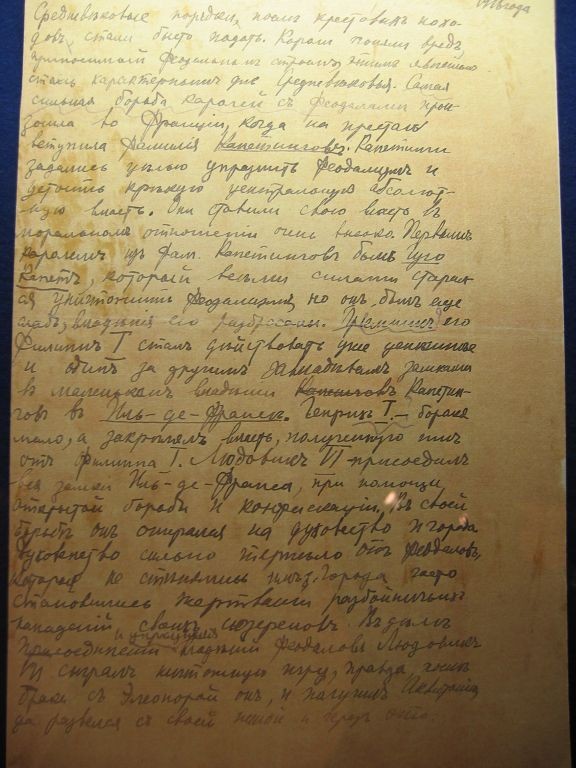 1918 года
Средневековые порядки, послѣ крестовыхъ похо-
довъ стали быстро падать. Короли поняли вредъ,
феодальнымъ строемъ,
сталъ характернымъ для Средневѣковья. Самая
сильная борьба королей съ феодалами прои-
зошла во Франціи, когда на престолъ
вступила фамилія Капетинговъ. Капетинги
задались цѣлью упразднить Феодализмъ и
крѣпкую центральную абсолют-
ную власть. Они ставили свою власть въ
моральномъ отношеніи очень высоко. Первымъ
королемъ изъ фам. Капетинговъ былъ Гуго
Капетъ, который всѣми силами старал-
ся уничтожить Феодализмъ, но онъ былъ еще
слабъ, владѣнія его разбросаны. его
Филиппъ I сталъ дѣйствовать уже
и одинъ за другимъ замки
въ маленькомъ владѣніи Капетин-
говъ въ Иль-де-Франсѣ. Генрихъ I – боролся
мало, а закрѣплялъ власть, полученную имъ
отъ Филиппа I. Людовикъ VI присоединилъ
всѣ замки Иль-де-Франса, при помощи
открытой борьбы и конфискаціи. Въ своей
борьбѣ онъ опирался на духовенство и города
духовенство сильно терпѣло отъ феодаловъ,
которые не стѣснялись Города часто
становились жертвами разбойничьихъ
нападеній своихъ сюзереновъ. Въ дѣлѣ
присоединенія владѣній феодаловъ Людовикъ
VII сыгралъ ничтожную игру, правда,
бракъ съ Элеонорой онъ, и получилъ Аквитанію,
да развелся съ своей женой и